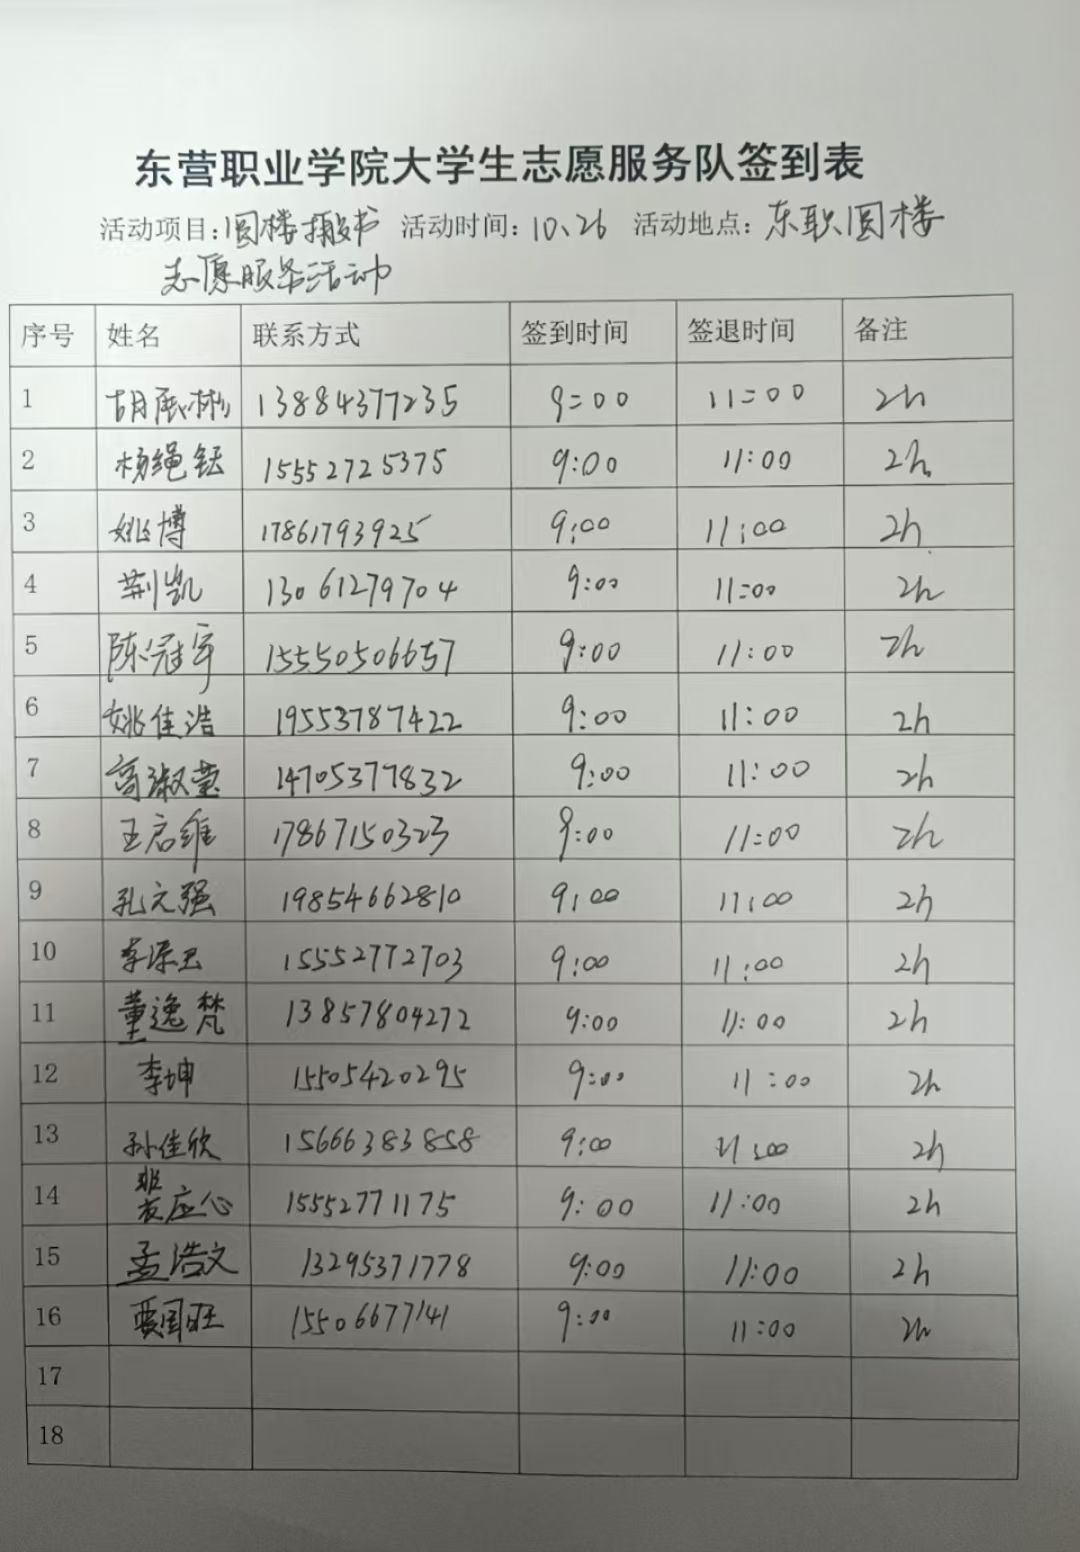 东营职业学院大学生志愿服务队签到表
活动项目:圆楼搬书 活动时间:10、26 活动地点:东职圆楼
志愿服务活动
序号 姓名 联系方式 签到时间 签退时间 备注
1 胡展彬 13884377235 9:00 11:00 2h
2 杨绳铉 15552725375 9:00 11:00 2h
3 姚博 17861793925 9:00 11:00 2h
4 荆凯 13061279704 9:00 11:00 2h
5 陈冠宇 15550506657 9:00 11:00 2h
6 姚佳浩 19553787422 9:00 11:00 2h
7 高淑莹 14705377832 9:00 11:00 2h
8 王启维 17867150323 9:00 11:00 2h
9 孔文强 19854662810 9:00 11:00 2h
10 李 15552772703 9:00 11:00 2h
11 董逸梵 13857804272 9:00 11:00 2h
12 李坤 15505420295 9:00 11:00 2h
13 孙佳欣 15666383858 9:00 11:00 2h
14 裴应心 15552771175 9:00 11:00 2h
15 孟浩文 13295371778 9:00 11:00 2h
16 贾国旺 15506677141 9:00 11:00 2h
17
18